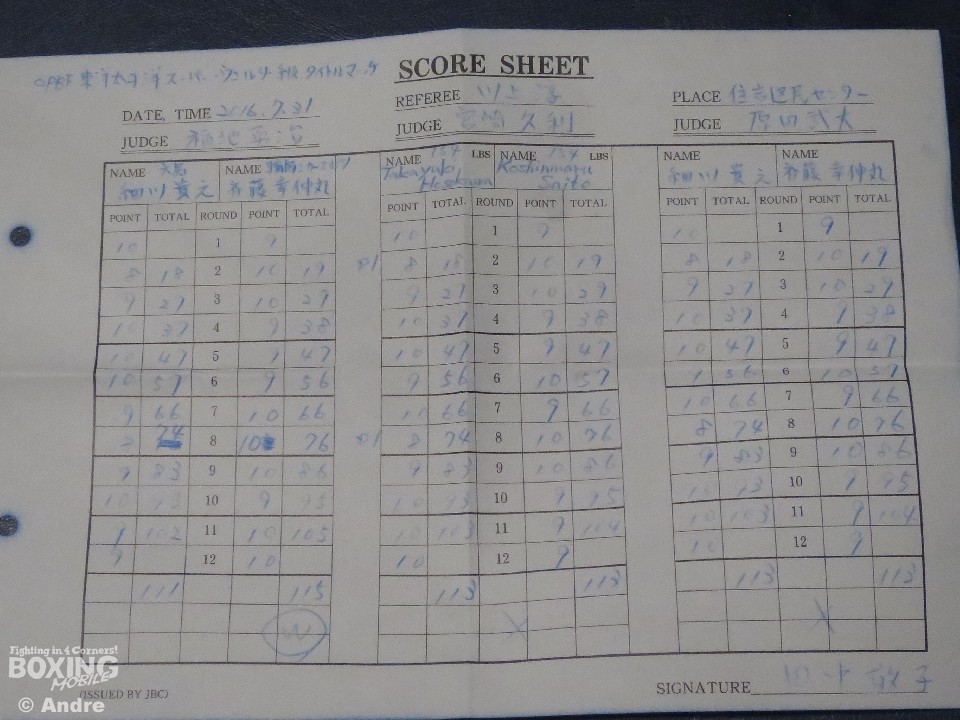 OPBF東洋太平洋スーパーウェルター級タイトルマッチ
SCORE SHEET
DATE, TIME 2016.7.31
REFEREE 川上
PLACE 住吉区民センター
JUDGE
JUDGE 宮崎久利
JUDGE 原田武夫
NAME 細川貴之 NAME 斉藤幸伸丸
NAME 154 LBS NAME 154 LBS
Takayuki Hosokawa Koshinmaru Saito
NAME 細川貴之 NAME 斉藤幸伸丸
POINT TOTAL ROUND POINT TOTAL POINT TOTAL ROUND POINT TOTAL POINT TOTAL ROUND POINT TOTAL
10 1 9 10 1 9 10 1 9
8 18 2 10 19 8 18 2 10 19 8 18 2 10 19
9 27 3 10 29 9 27 3 10 29 9 27 3 10 29
10 37 4 9 38 10 37 4 9 38 10 37 4 9 38
10 47 5 9 47 10 47 5 9 47 10 47 5 9 47
10 57 6 9 56 9 56 6 10 57 9 56 6 10 57
9 66 7 10 66 10 66 7 9 66 10 66 7 9 66
8 74 8 10 76 8 74 8 10 76 8 74 8 10 76
9 83 9 10 86 9 83 9 10 86 9 83 9 10 86
10 93 10 9 95 10 93 10 9 95 10 93 10 9 95
9 102 11 10 105 10 103 11 9 104 10 103 11 9 104
9 12 10 10 12 9 10 12 9
111 115 113 113 113 113
W X X
(ISSUED BY JBC)
SIGNATURE
Fighting in 4 Corners!
BOXING
MOBILE
© Andre